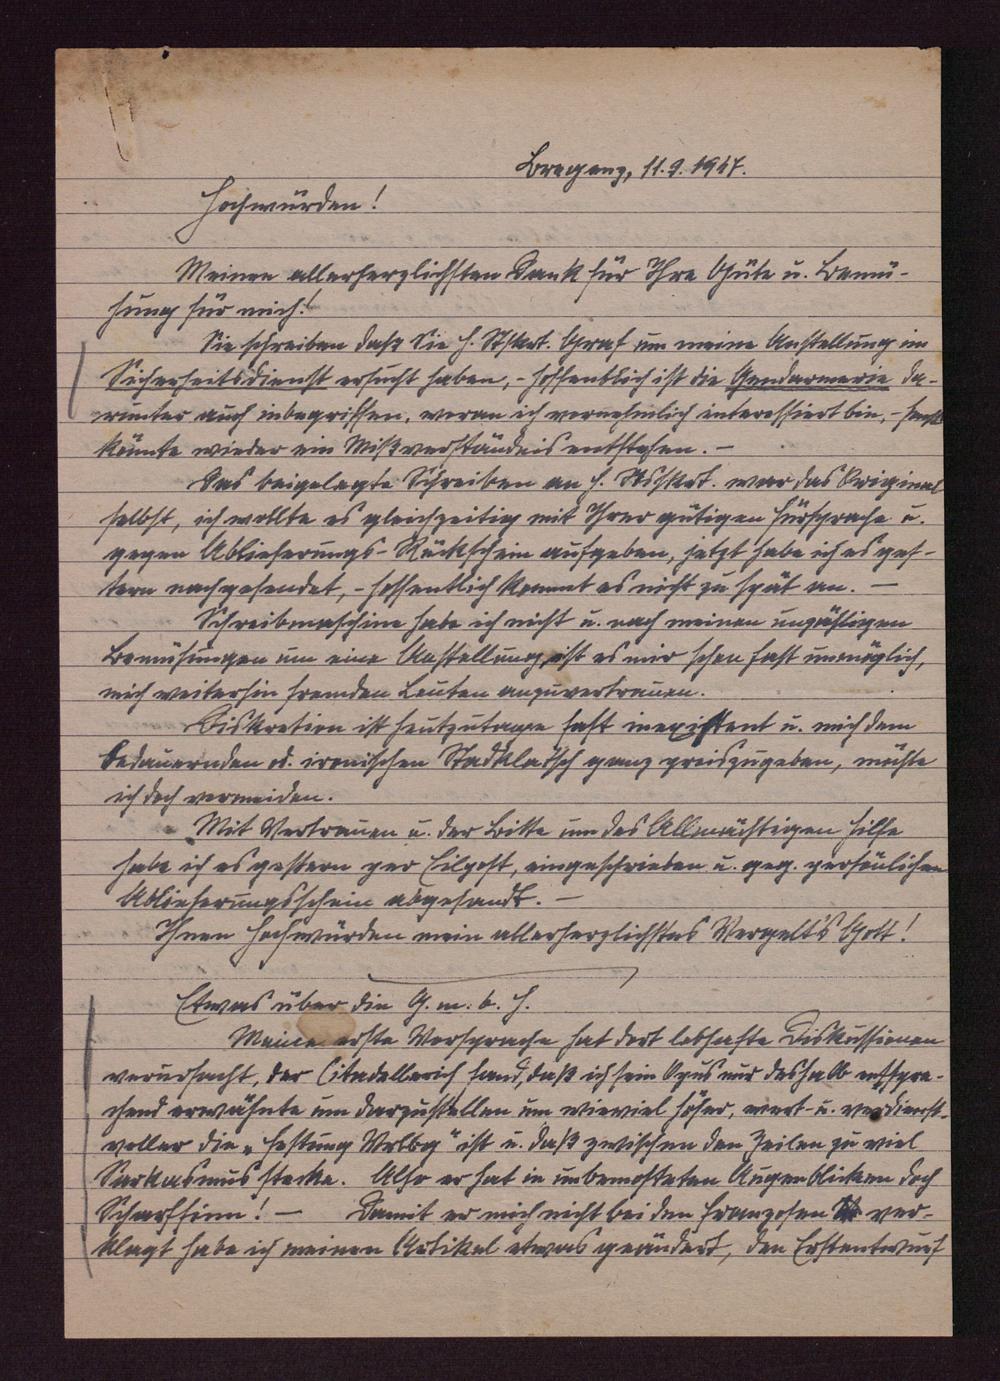 Bregenz, 11.9.1947.
Hochwürden!
Meinen allerherzlichsten Dank für Ihre Güte u. Bemü-
hung für mich!
Sie schreiben daß Sie H. Stskrt. Graf um meine Anstellung im
Sicherheitsdienst ersucht haben, - hoffentlich ist die Gendarmerie da-
runter auch inbegriffen, woran ich vornehmlich interessiert bin, -
könnte wieder ein Mißverständnis entstehen. -
Das beigelegte Schreiben an H. Stskrt. war das Original
selbst, ich wollte es gleichzeitig mit Ihrer gütigen Fürsprache u.
gegen Ablieferungs-Rückschein aufgeben, jetzt habe ich es ges-
tern nachgesendet, - hoffentlich kommt es nicht zu spät an. -
Schreibmaschine habe ich nicht u. nach meinen unzähligen
Bemühungen um eine Anstellung, ist es mir schon fast unmöglich,
mich weiterhin fremden Leuten anzuvertrauen.
Diskretion ist heutzutage fast inexistent u. mich dem
bedauernden od. ironischen Stadtklatsch ganz preiszugeben, möchte
ich doch vermeiden.
Mit Vertrauen u. der Bitte um des Allmächtigen Hilfe
habe ich es gestern per Eilpost, eingeschrieben u. geg. persönlichen
Ablieferungsschein abgesandt. -
Ihnen Hochwürden mein allerherzlichstes Vergelt's Gott!
Etwas über die G. m. b. H.
Meine erste Vorsprache hat dort lebhafte Diskussionen
verursacht, der Citadellerich fand, daß ich sein Opus nur deshalb entspre-
chend erwähnte um darzustellen um wieviel höher, wert- u. verdienst-
voller die „Festung Vrlbg" ist u. daß zwischen den Zeilen zu viel
Sarkasmus stecke. Also er hat in unbemosteten Augenblicken doch
Scharfsinn! - Damit er mich nicht bei den Franzosen ver-
klagt habe ich meinen Artikel etwas geändert, den Erstentwurf